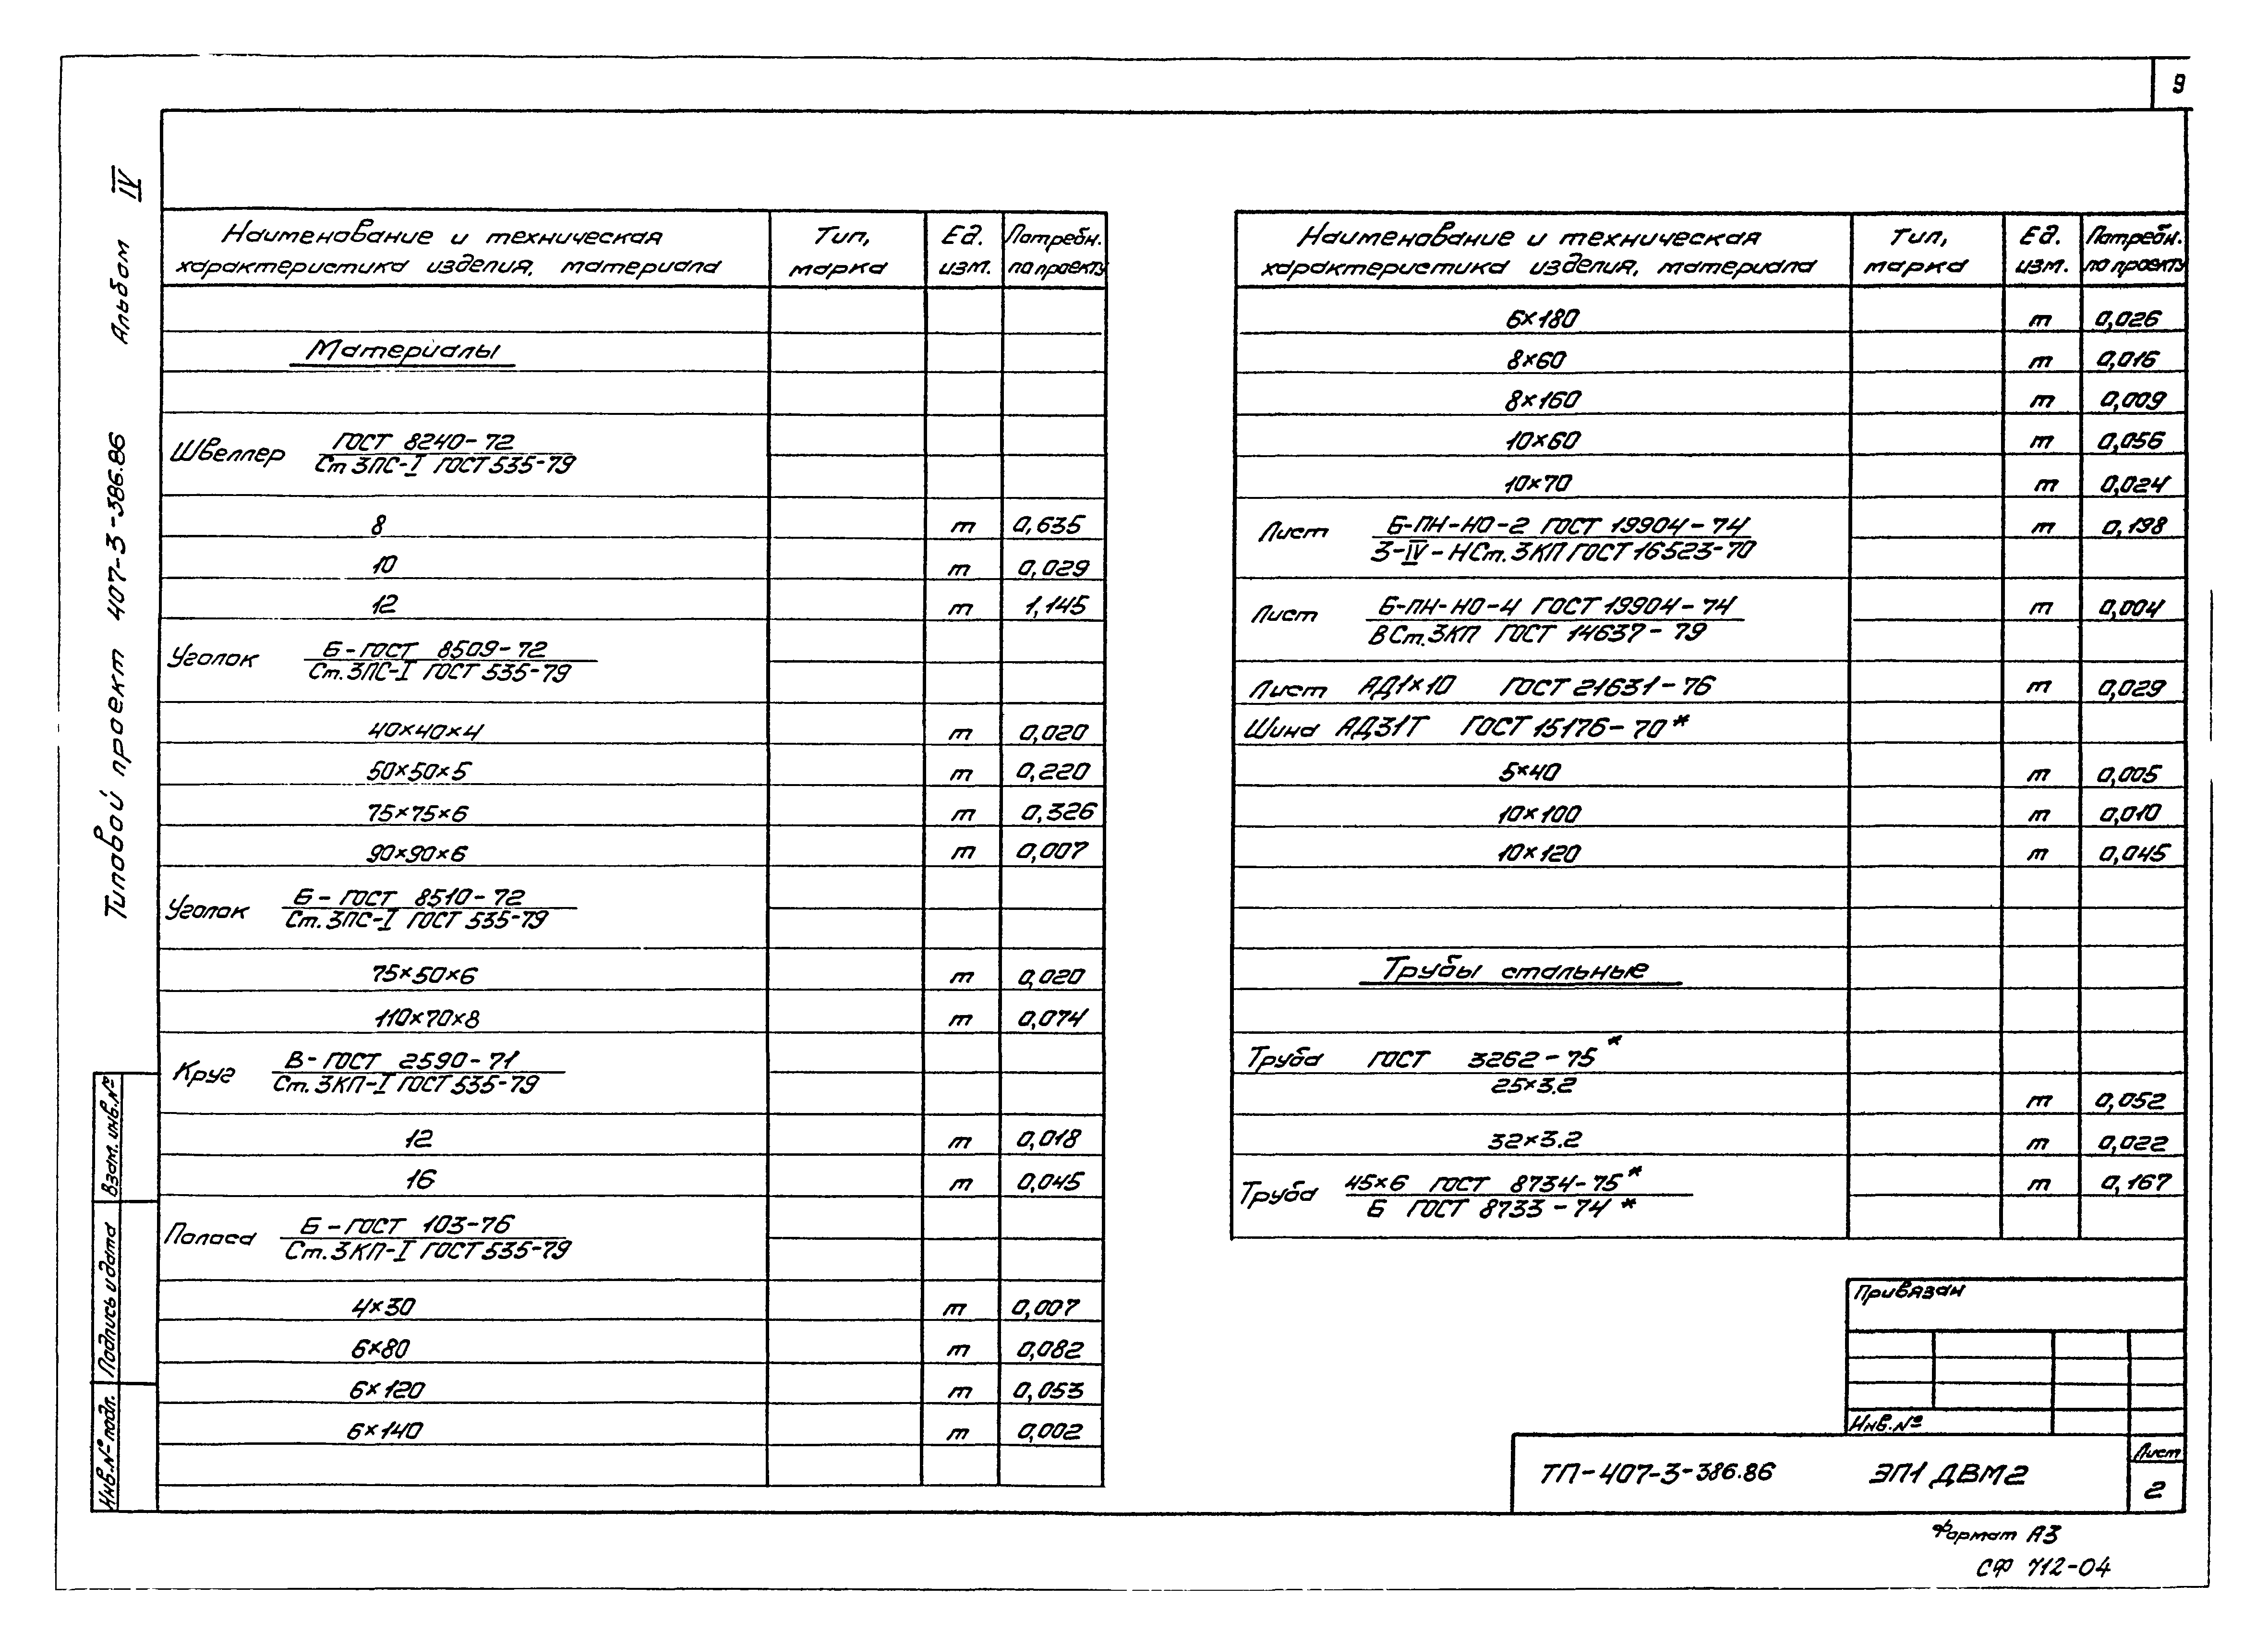 9
Типовой проект 407-3-386.86 Альбом IV
Наименование и техническая характеристика изделия, материала | Тип, марка | Ед. изм. | Потребн. по проекту
Материалы
Швеллер ГОСТ 8240-72
Ст 3ПС-I ГОСТ 535-79
8 т 0,635
10 т 0,029
12 т 1,145
Уголок Б-ГОСТ 8509-72
Ст.3ПС-I ГОСТ 535-79
40×40×4 т 0,020
50×50×5 т 0,220
75×75×6 т 0,326
90×90×6 т 0,007
Уголок Б-ГОСТ 8510-72
Ст.3ПС-I ГОСТ 535-79
75×50×6 т 0,020
110×70×8 т 0,074
Круг В-ГОСТ 2590-71
Ст.3КП-I ГОСТ 535-79
12 т 0,018
16 т 0,045
Полоса Б-ГОСТ 103-76
Ст.3КП-I ГОСТ 535-79
4×30 т 0,007
6×80 т 0,082
6×120 т 0,053
6×140 т 0,002
Наименование и техническая характеристика изделия, материала | Тип, марка | Ед. изм. | Потребн. по проекту
6×180 т 0,026
8×60 т 0,016
8×160 т 0,009
10×60 т 0,056
10×70 т 0,024
Лист Б-ПН-НО-2 ГОСТ 19904-74 т 0,198
3-IV-НСт.3КП ГОСТ 16523-70
Лист Б-ПН-НО-4 ГОСТ 19904-74 т 0,004
ВСт.3КП ГОСТ 14637-79
Лист АД1×10 ГОСТ 21631-76 т 0,029
Шина АД31Т ГОСТ 15176-70*
5×40 т 0,005
10×100 т 0,010
10×120 т 0,045
Трубы стальные
Труба ГОСТ 3262-75*
25×3.2 т 0,052
32×3.2 т 0,022
Труба 45×6 ГОСТ 8734-75* т 0,167
Б ГОСТ 8733-74*
Привязан
Инв.№
ТП-407-3-386.86 ЭП1 ДВМ2
Лист
2
Формат А3
СФ 712-04
Взам. инв.№
Подпись и дата
Инв.№ подл.